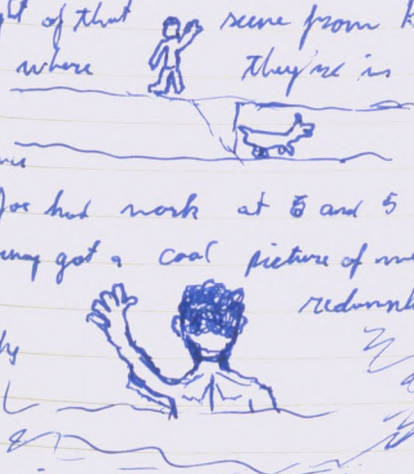 of that scene from
where they're in
Joe had work at 5 and 5
got a cool picture of me